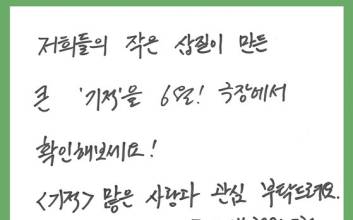 저희들의 작은 삽질이 만든
큰 '기적'을 6월! 극장에서
확인해보세요!
<기적> 많은 사랑과 관심 부탁드려요.